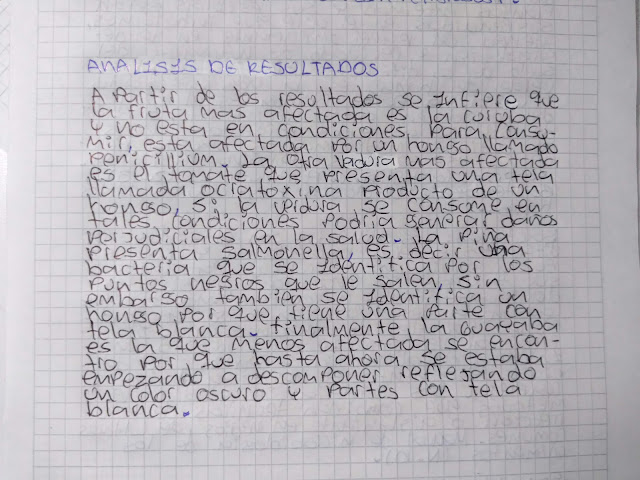 ANALISIS DE RESULTADOS
A Partir de los resultados se infiere que
la fruta mas afectada es la curuba
y no esta en condiciones para consu-
mir, esta afectada por un hongo llamado
penicillium. La otra verdura mas afectada
es el tomate que presenta una tela
llamada ocratoxina producto de un
hongo, si la verdura se consume en
tales condiciones podria generar daños
perjudiciales en la salud. La piña
presenta salmonella, es decir una
bacteria que se identifica por los
puntos negros que le salen, sin
embargo tambien se identifica un
hongo por que tiene una parte con
tela blanca. finalmente la guayaba
es la que menos afectada se encon-
tro por que hasta ahora se estaba
empezando a descomponer reflejando
un color oscuro y partes con tela
blanca.